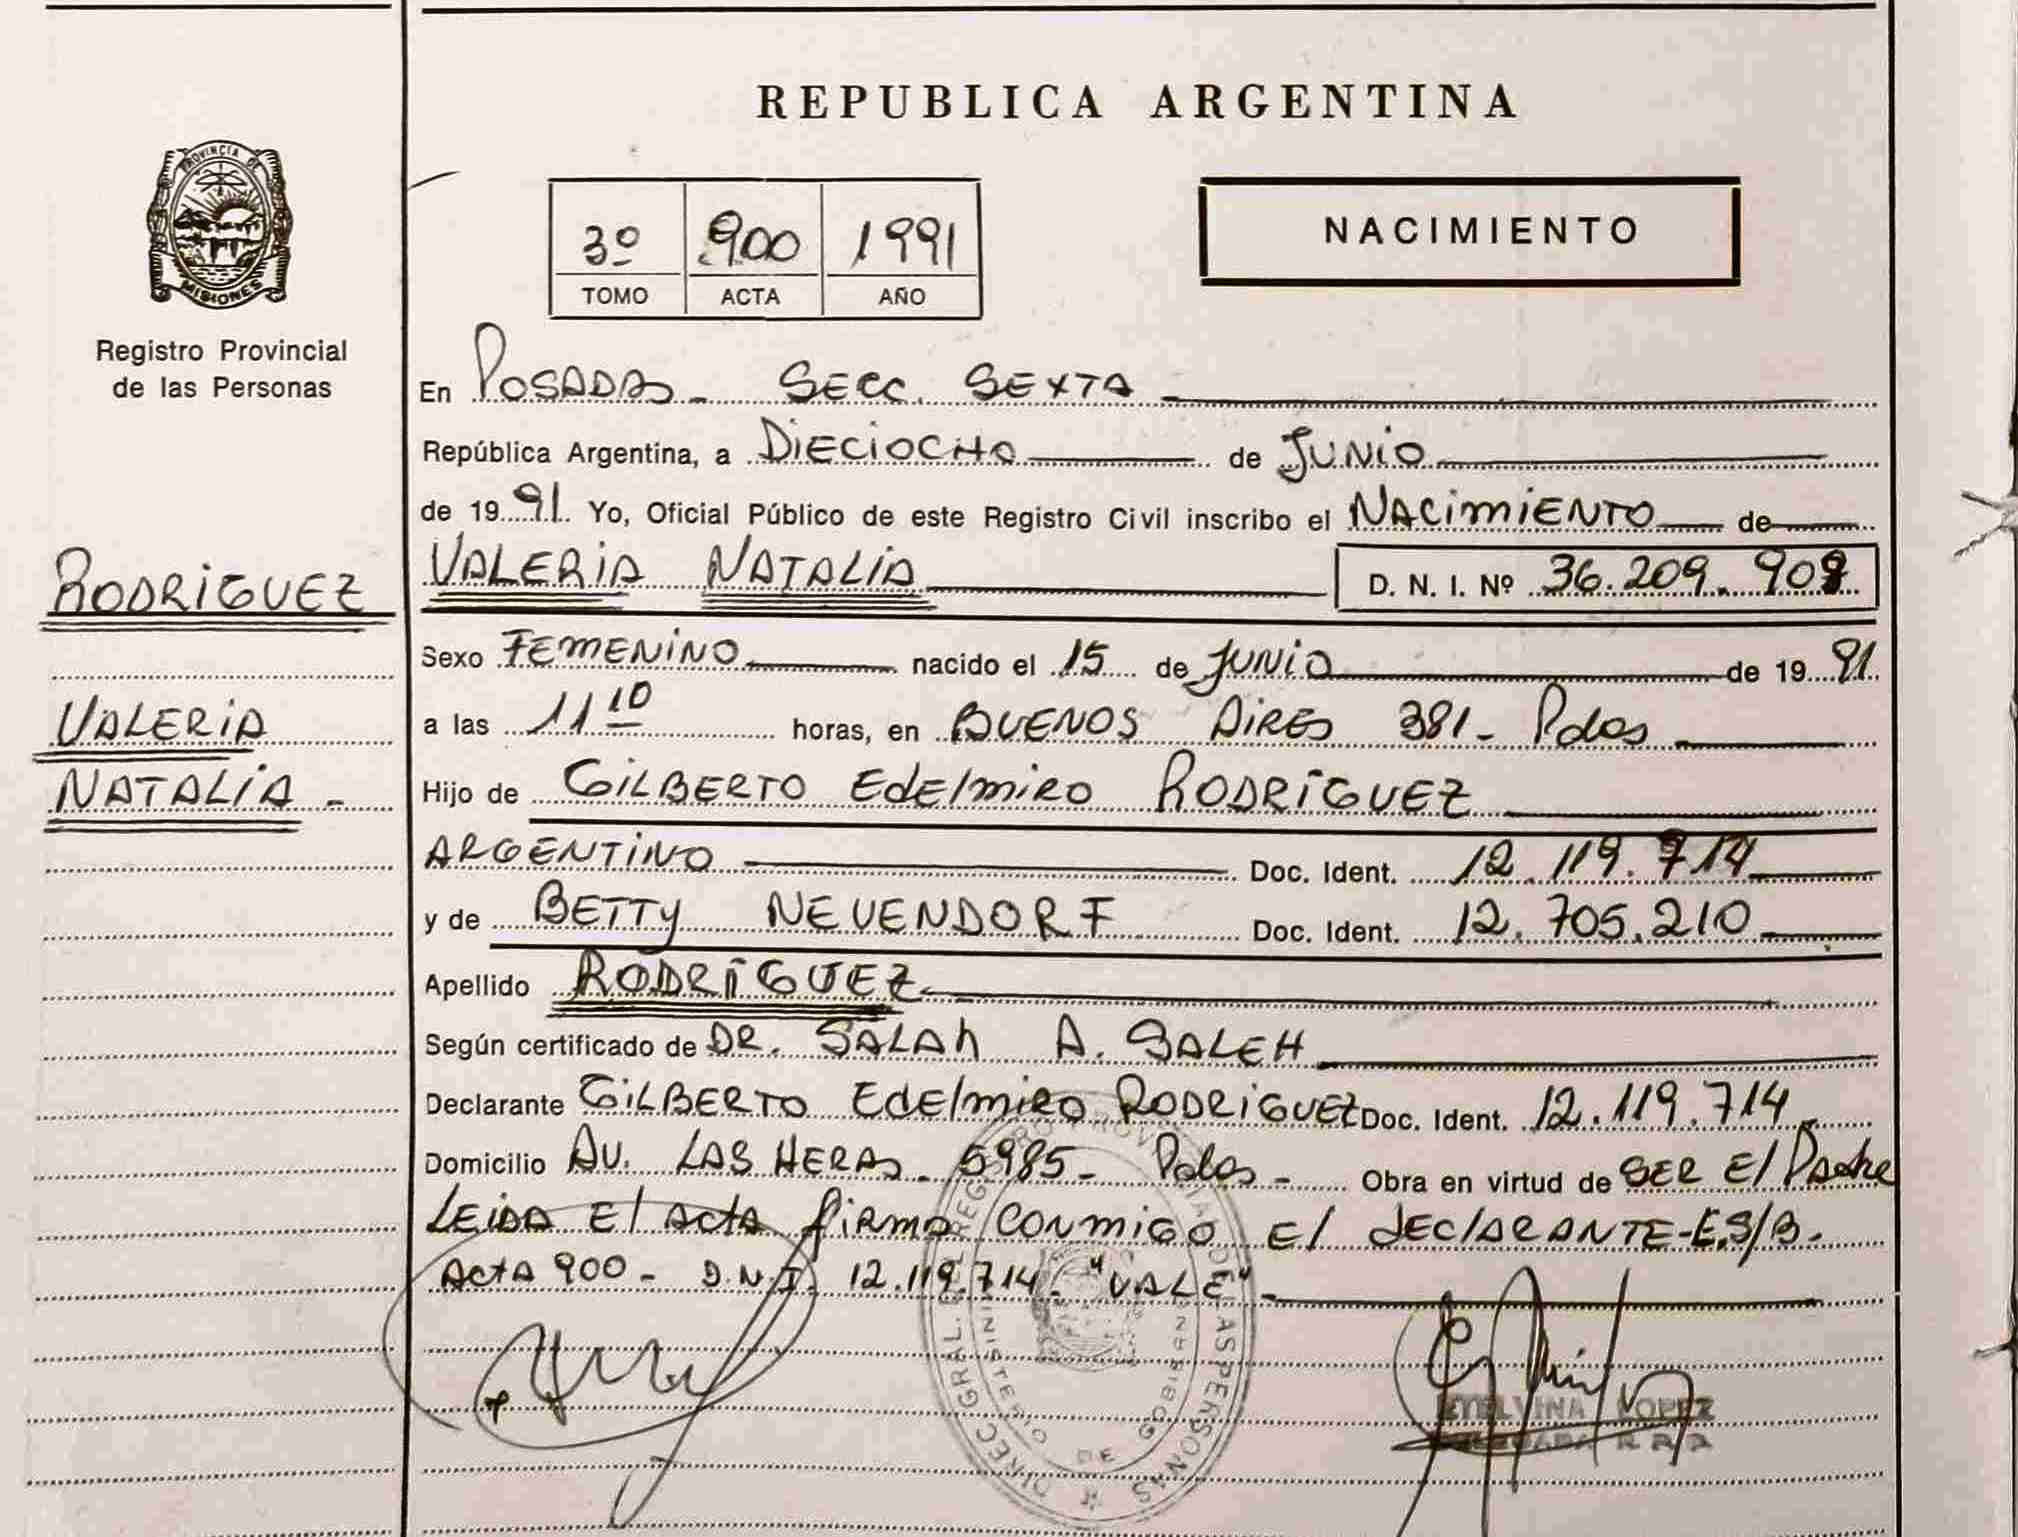 REPUBLICA ARGENTINA
PROVINCIA DE
MISIONES
Registro Provincial
de las Personas
3º 900 1991
TOMO ACTA AÑO
NACIMIENTO
En POSADAS - SECC. SEXTA
República Argentina, a DIECIOCHO de JUNIO
de 1991. Yo, Oficial Público de este Registro Civil inscribo el NACIMIENTO de
RODRIGUEZ
VALERIA NATALIA D. N. I. Nº 36.209.908
Sexo FEMENINO nacido el 15 de JUNIO de 1991.
VALERIA
a las 11 10 horas, en BUENOS AIRES 381 - Pdas
NATALIA -
Hijo de GILBERTO EdElmiRO RODRIGUEZ
ARGENTINO Doc. Ident. 12.119.714
y de BETTY NEUENDORF Doc. Ident. 12.705.210
Apellido RODRIGUEZ
Según certificado de DR. SALAh A. SALEH
Declarante GILBERTO EdElmiRO RODRIGUEZ Doc. Ident. 12.119.714
Domicilio AV. LAS HERAS - 5985 - Pdas - Obra en virtud de SER El Padre
LEIDA El ActA firma CONMIGO El dEClARANTE-E.S/B.
ActA 900 - D.N.I. 12.119.714 - "VALE"
DIREC. GRAL. DEL REGISTRO PROVINCIAL DE LAS PERSONAS
MINISTERIO DE GOBIERNO
ETELVINA LOPEZ